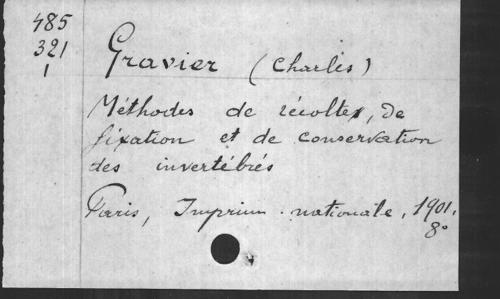 485
321
1
Gravier (Charles)
Méthodes de récoltes, de
fixation et de conservation
des invertébrés
Paris, Imprim. nationale, 1901.
8°